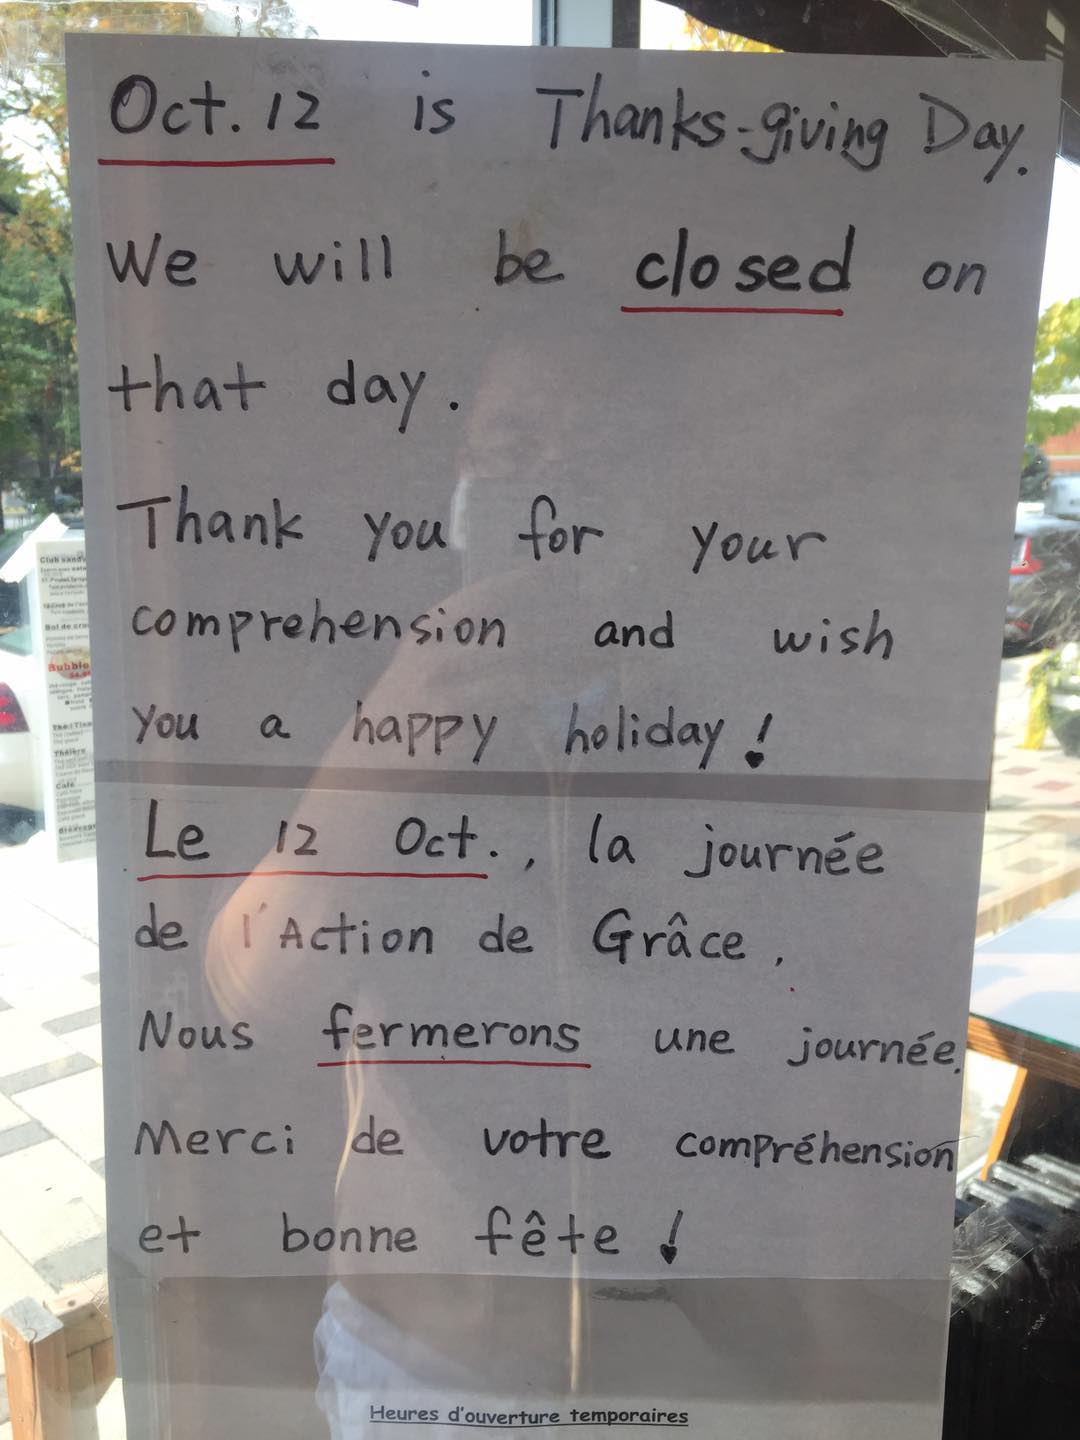 Oct. 12 is Thanks-giving Day.
We will be closed on
that day.
Thank you for your
comprehension and wish
you a happy holiday!
Le 12 Oct., la journée
de l'Action de Grâce,
Nous fermerons une journée.
Merci de votre compréhension
et bonne fête!
Heures d'ouverture temporaires
Club
Bol de
Bubble
Café